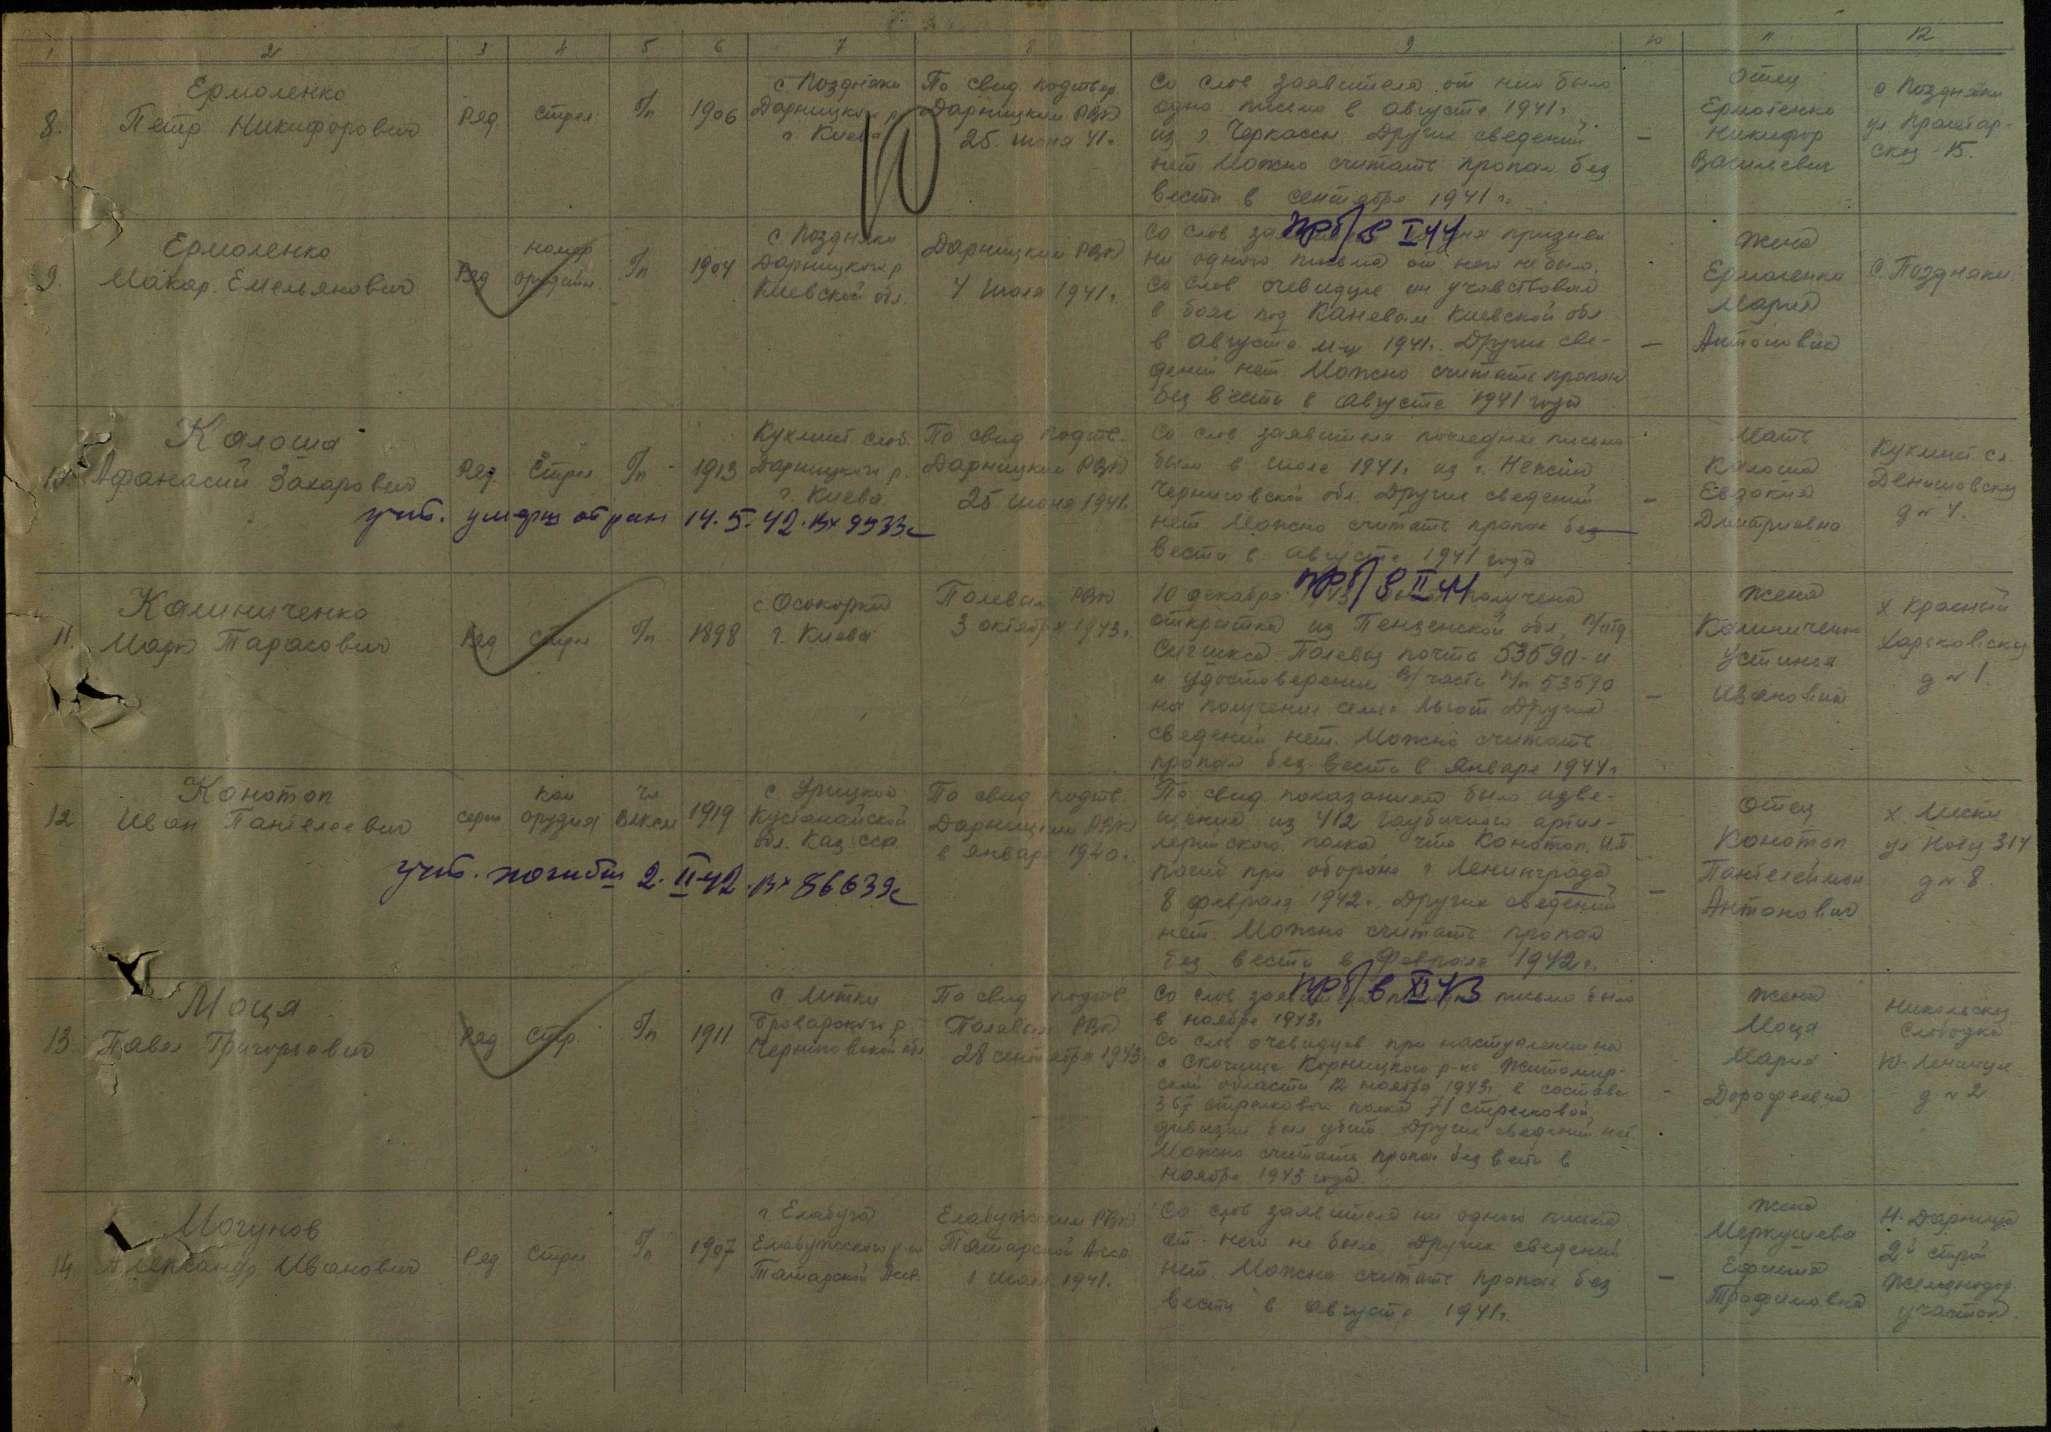 1 2 3 4 5 6 7 8 9 10 11 12
8. Ермоленко
Петр Никифорович
Ряд стрел б/п 1906
с. Поздняки
Дарницкого р.
г. Киева
По свид. подтвер.
Дарницким РВК
25 июня 41 г.
Со слов заявителя от него было
одно письмо в августе 1941 г.
из г. Черкассы Других сведений
нет Можно считать пропал без
вести в сентябре 1941 г.
—
Отец
Ермоленко
Никифор
Васильевич
с Поздняки
ул. Пролетар-
ская - 15.
9. Ермоленко
Макар Емельянович
Ряд номер
орудийн. б/п 1904
с. Поздняки
Дарницкого р
Киевской обл.
Дарницким РВК
4 июля 1941 г.
пр б/в I 44
Со слов призыва
ни одного письма от него не было.
Со слов очевидцев он участвовал
в боях под Каневом Киевской обл
в августе м-це 1941 г. Других све-
дений нет Можно считать пропал
без вести в августе 1941 года
—
Жена
Ермоленко
Мария
Антоновна
с. Поздняки
10. Калоша
Афанасий Захарович
Ряд Стрел б/п 1913
Кухмист. слоб.
Дарницкого р.
г. Киева
По свид подтв.
Дарницким РВК
25 июня 1941 г.
учт. умерш от ран 14.5.42. Вх 9933с
Со слов заявителя последнее письмо
было в июле 1941 г. из г. Нежина
Черниговской обл. Других сведений
нет Можно считать пропал без
вести в августе 1941 года
—
Мать
Калоша
Евдокия
Дмитриевна
Кухмист сл.
Денисовская
д № 4.
11. Калиниченко
Марк Тарасович
Ряд стрел б/п 1898
с. Осокорки
г. Киева
Полевым РВК
3 октября 1943 г.
пр б/в II 44
10 декабря получена
открытка из Пензенской обл. п/отд
Селикса Полевая почта 53590-и
и удостоверение в/часть п/п 53590
на получение семье льгот Других
сведений нет. Можно считать
пропал без вести в январе 1944 г.
—
Жена
Калиниченко
Устинья
Ивановна
х. Красный
Харьковская
д № 1.
12 Конотоп
Иван Пантелеевич
серж ком
орудия чл
ВЛКСМ 1919
с. Урицкое
Кустанайской
обл. Каз. ССР
По свид подтв.
Дарницким РВК
в январе 1940 г.
учт. погибш 2.II-42. Вх 86639с
По свид показаниям было изве-
щение из 412 гаубичного артил-
лерийского полка что Конотоп И.П
погиб при обороне г Ленинграда
8 февраля 1942 г. Других сведений
нет. Можно считать пропал
без вести в феврале 1942 г.
—
Отец
Конотоп
Пантелеймон
Антонович
х. Лиски
д № 8
13 Моця
Павел Григорьевич
Ряд Стр. б/п 1911
с. Литки
Броварского р.
Черниговской обл
По свид подтв.
Полевым РВК
28 сентября 1943
пр б/в XI 43
Со слов письмо было
в ноябре 1943 г.
Со слов очевидцев при наступлении на
житомир-
ской области 12 ноября 1943 г. в составе
367 стрелкового полка 71 стрелковой
дивизии был убит. Других сведений нет
Можно считать пропал без вести в
ноябре 1943 года
—
Жена
Моця
Мария
Дорофеевна
Никольская
Слободка
д № 2
14 Могунов
Александр Иванович
Ряд Стрел б/п 1907
г. Елабуга
Елабужского р-на
Татарской Асср.
Елабужским РВК
Татарской Асср
1 июля 1941 г.
Со слов заявителя ни одного письма
от него не было. Других сведений
нет Можно считать пропал без
вести в августе 1941 г.
—
Жена
Меркушева
Трофимовна
Н. Дарница
2й строй
Железнодор
участок.